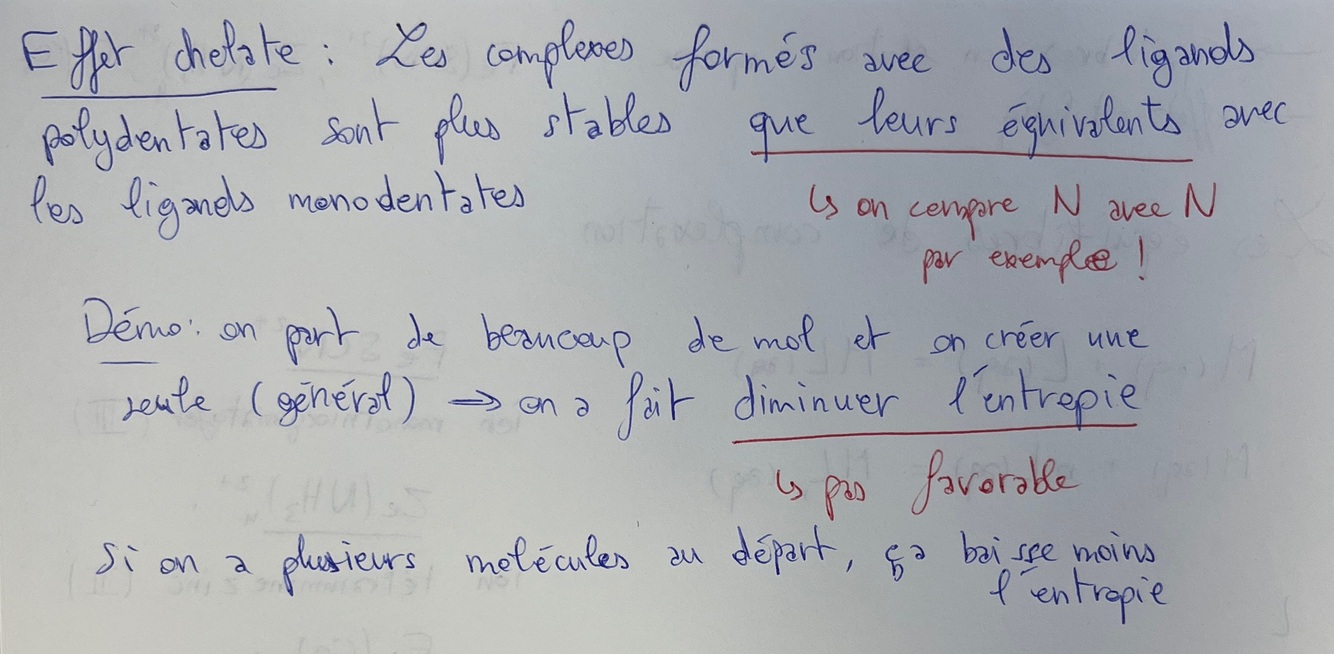 Effet chelate : Les complexes formés avec des ligands
polydentates sont plus stables que leurs équivalents avec
les ligands monodentates
↳ on compare N avec N
par exemple !
Démo : on part de beaucoup de mol et on créer une
seule (général) → on a fait diminuer l'entropie
↳ pas favorable
Si on a plusieurs molécules au départ, ça baisse moins
l'entropie